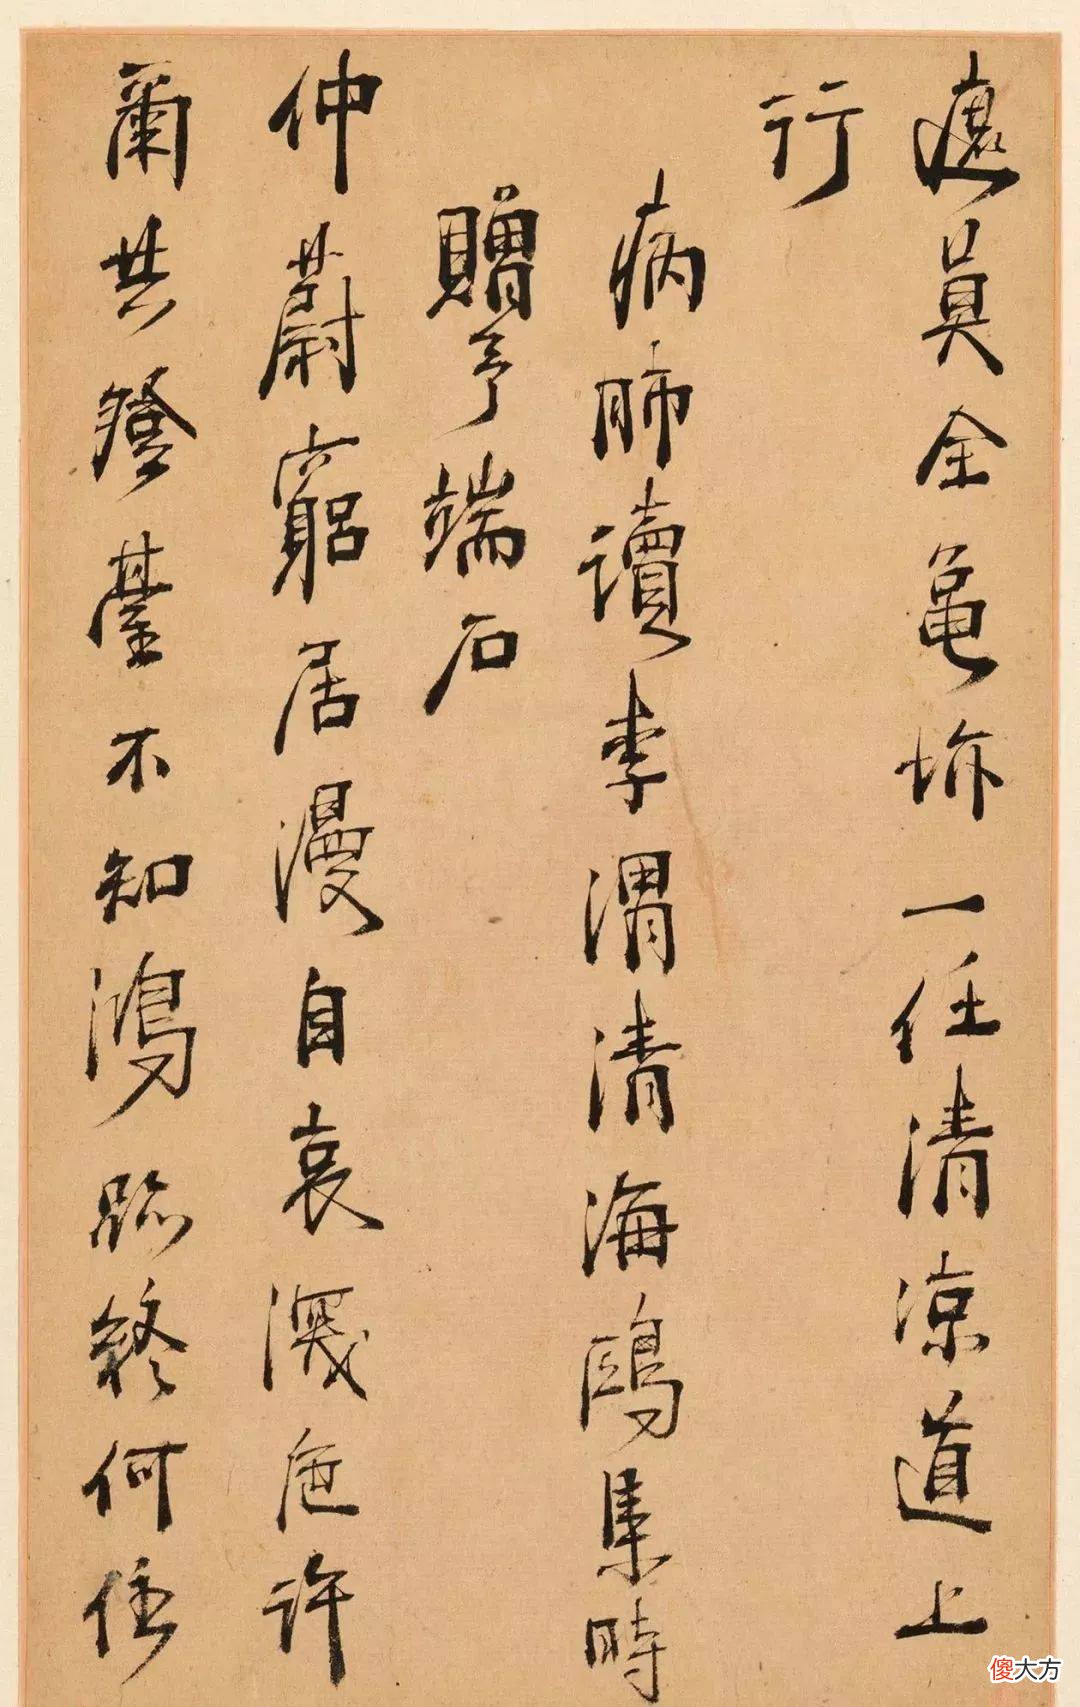 還吳全龜坼一任清涼道上
行
病肺讀李渭清海鷗集時
贈予端石
仲蔚窮居漫自哀淺卮許
爾共登臺不知鴻跡終何住
傻大方